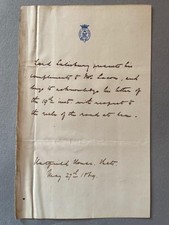 Lord Salisbury presents his
compliments to Mr. and
begs to acknowledge his letter of
the 19th inst. with respect to
the rule of the road at sea.
Hatfield House, Herts
May 27th